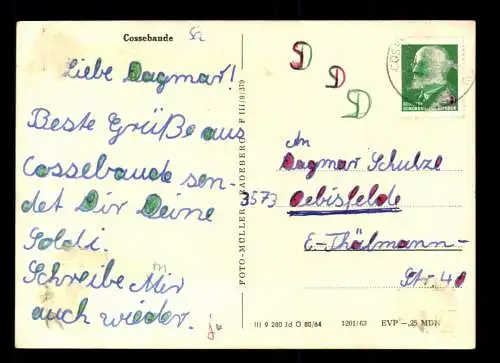 Cossebaude
Liebe Dagmar!
Beste Grüße aus
Cossebaude sen-
det Dir Deine
Soldi.
Schreibe Mir
auch wieder.
FOTO-MÜLLER RADEBERG F III/9/379
D
D
D
An
Dagmar Schulze
3573 Oebisfelde
E-Thälmann-
Str. 41
III 9 280 Jd G 80/64 1201/63 EVP -,25 MDN